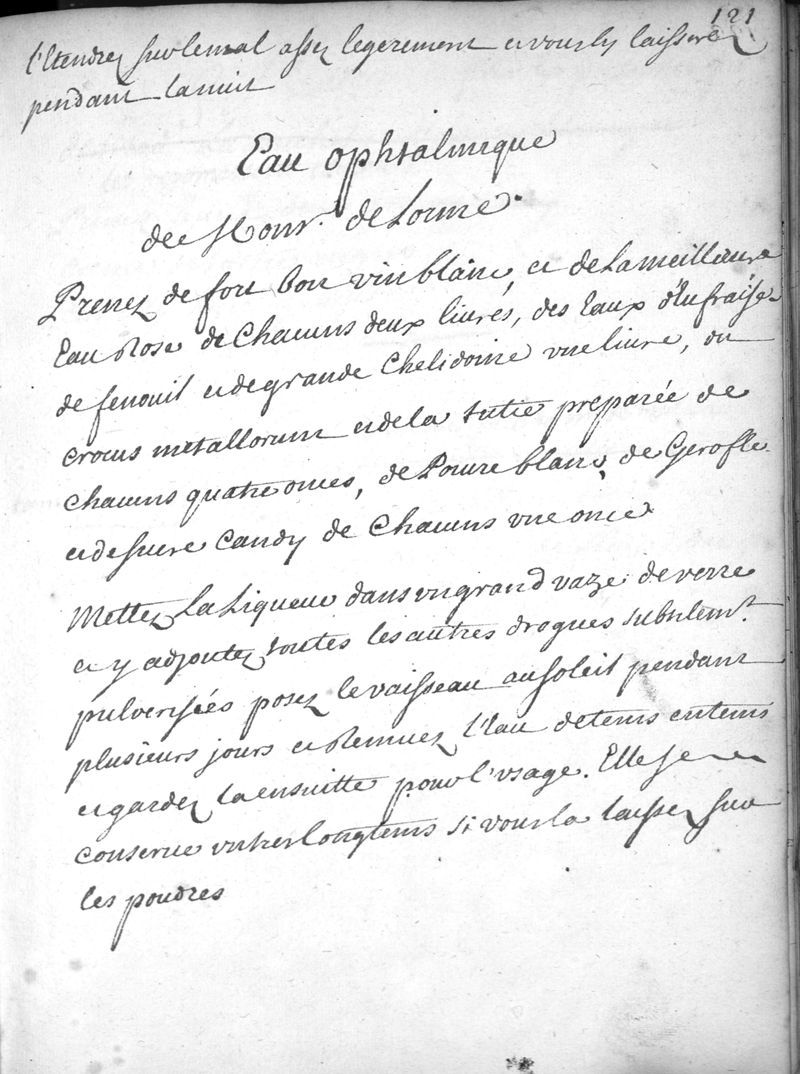 121
l'Etendrez sur le mal assez legerement et vous ly laisserez
pendant la nuit
Eau ophtalmique
de Monsr. de Lorme.
Prenez de fort bon vin blanc, et de la meilleure
Eau Rose de Chacuns deux livres, des Eaux d'Eufraise
de fenouil et de grande Chelidoine une livre, du
crocus metallorum et de la tutie preparée de
chacuns quatre onces, de Poivre blanc, de Gerofle
et de sucre Candy de Chacuns une once
Mettez La Liqueur dans un grand vaze de verre
et y adjoutez toutes les autres drogues subtilemt.
pulverisées posez le vaisseau au soleil pendant
plusieurs jours et Remuez l'Eau de tems en tems
et gardez la ensuitte pour l'usage. Elle se
conserve un tres longtems si vous la laissez sur
les poudres